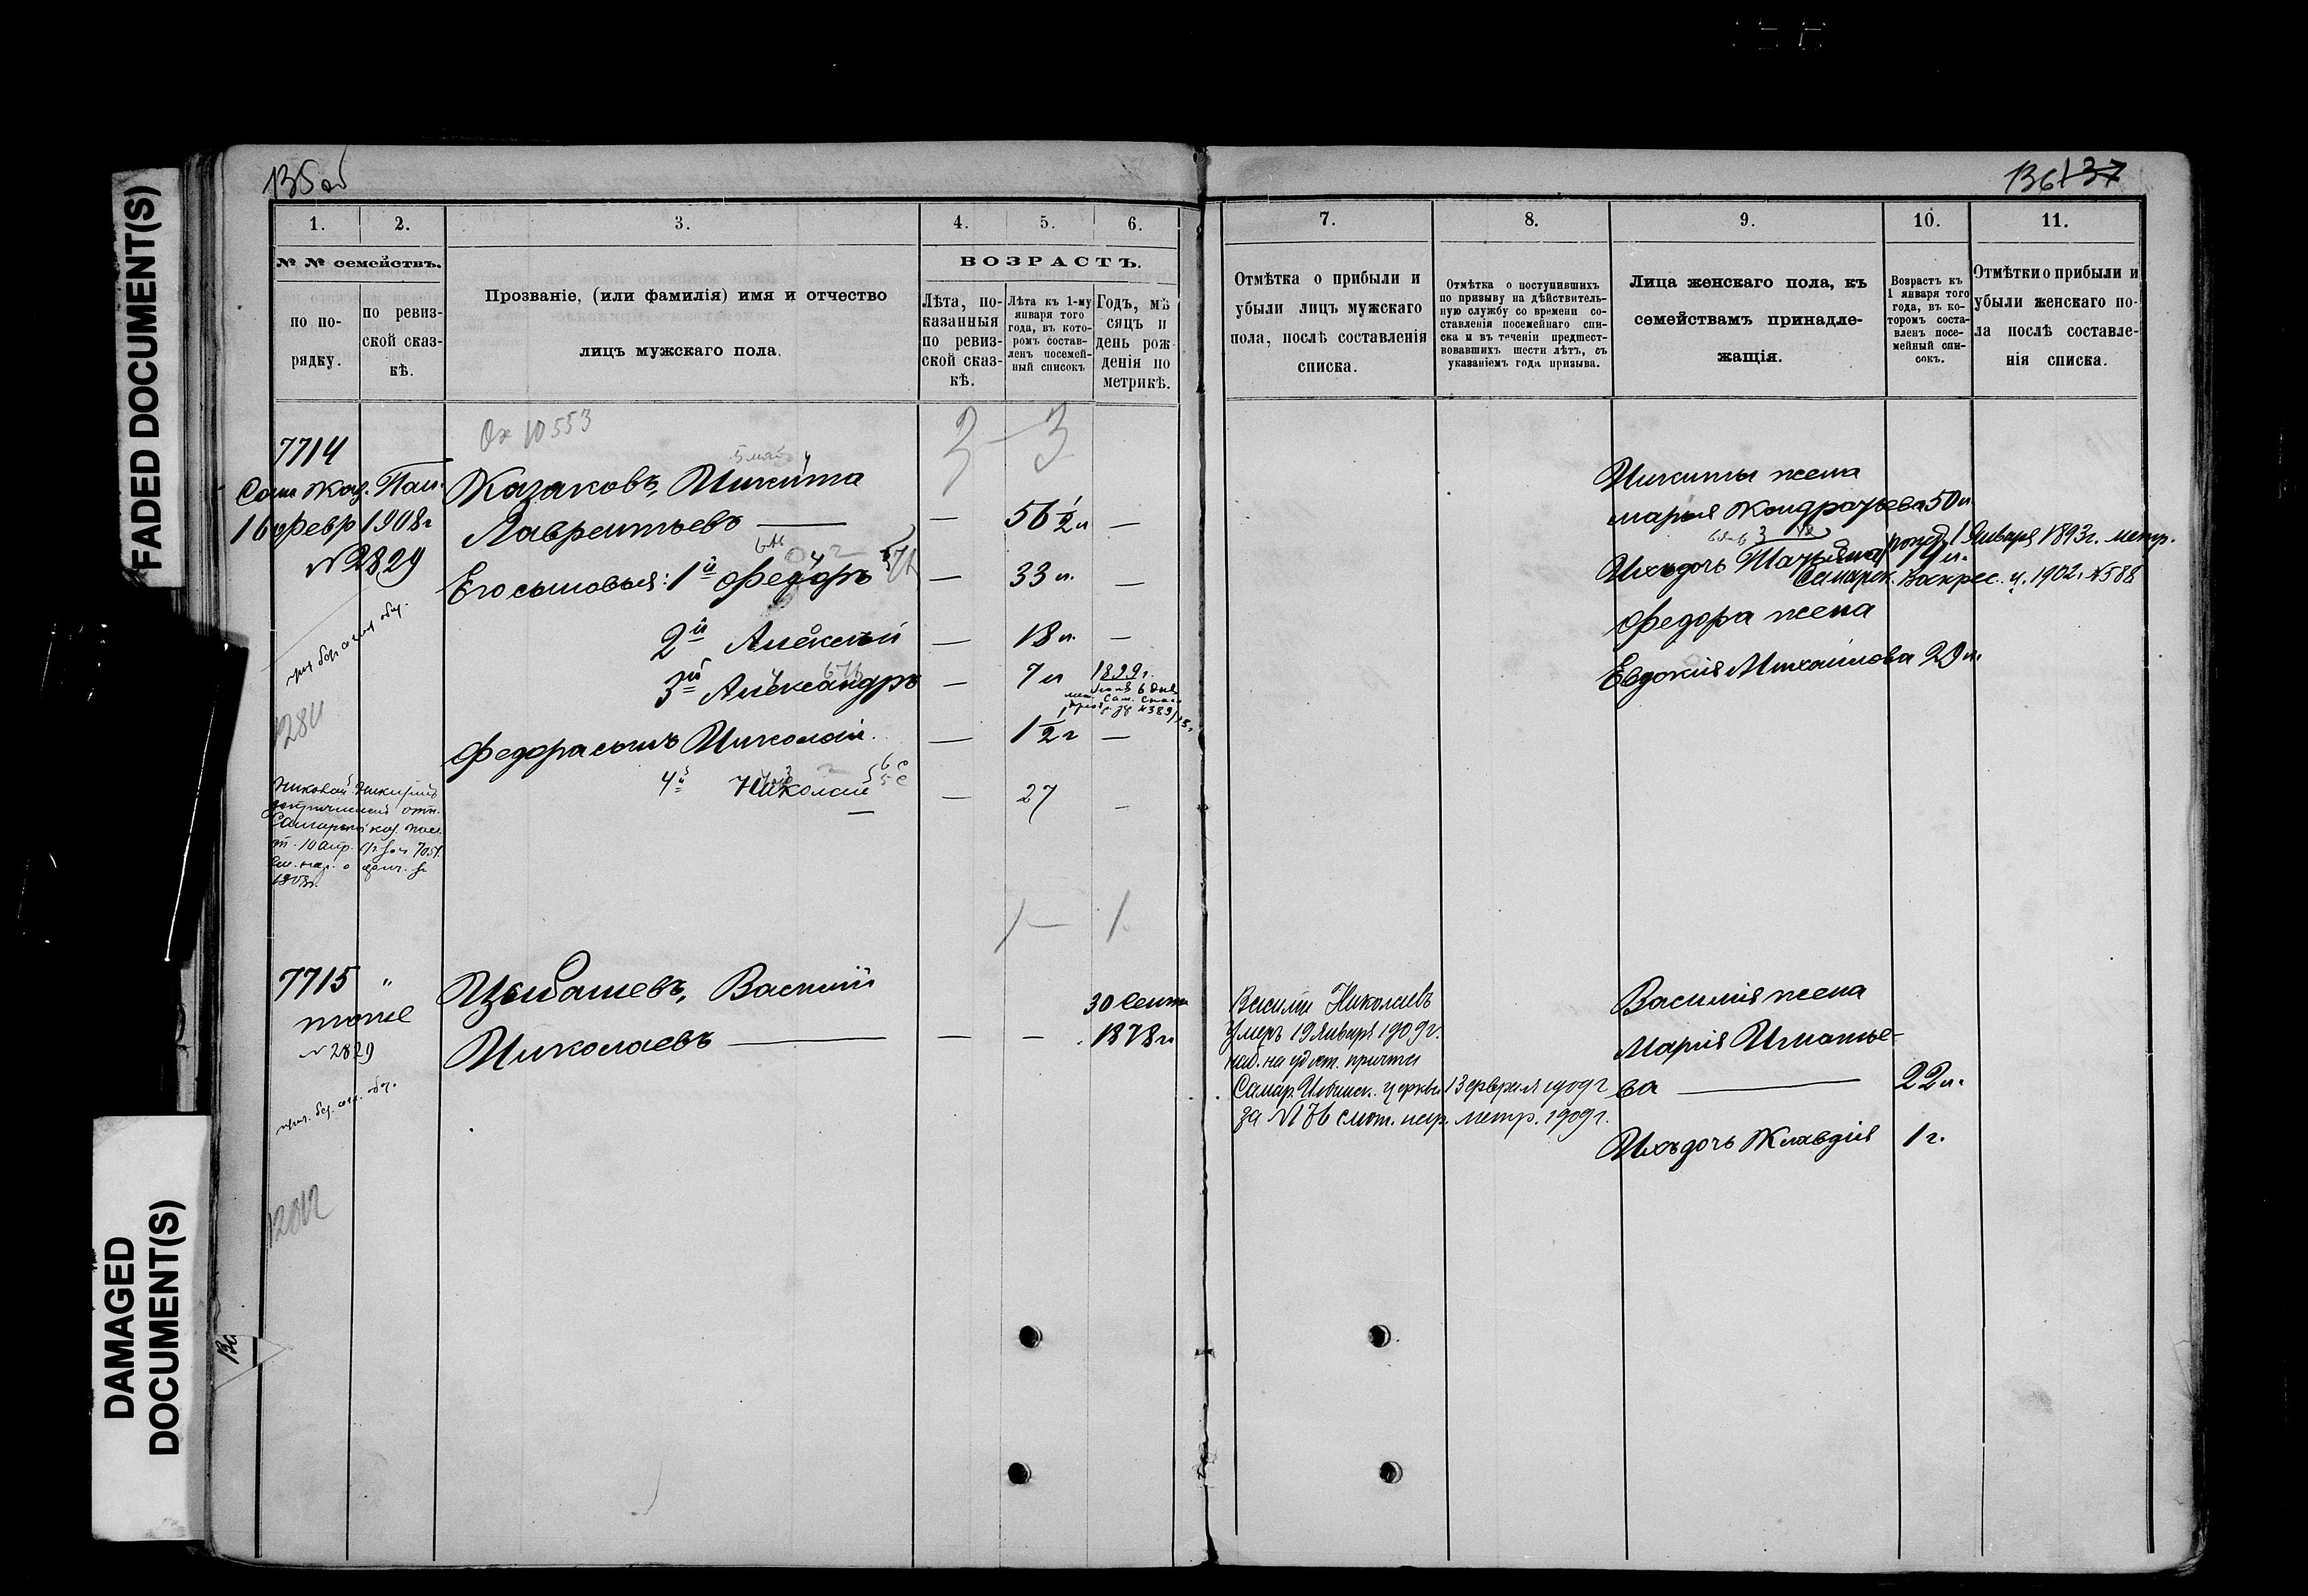 FADED DOCUMENT(S)
DAMAGED DOCUMENT(S)
135об
136 137
1.
2.
3.
4.
5.
6.
№ № семействъ.
по по-
рядку.
по ревиз-
ской сказ-
кѣ.
Прозваніе, (или фамилія) имя и отчество
лицъ мужскаго пола.
ВОЗРАСТЪ.
Лѣта, по-
казанныя
по ревиз-
ской сказ-
кѣ.
Лѣта къ 1-му
января того
года, въ кото-
ромъ состав-
ленъ посемей-
ный списокъ
Годъ, мѣ
сяцъ и
день рож-
денія по
метрикѣ.
Ох 10553
3 — 3
7714
Сам Каз. Пал.
16 февр 1908 г
№ 2829
Казаковъ, Никита
Лаврентьевъ —
— 56 1/2 л —
Его сыновья: 1й Федоръ — 33 л. —
2й Алексѣй — 18 л. —
3й Александръ — 7 л 1899 г.
Федора сынъ Николай. — 1 1/2 г —
4й Николай — 27 —
1 — 1
7715 "
тоже
№ 2829
Василій
Николаевъ — — —
30 Сент
1878 г
7.
8.
9.
10.
11.
Отмѣтка о прибыли и
убыли лицъ мужскаго
пола, послѣ составленія
списка.
Отмѣтка о поступившихъ
по призыву на дѣйствитель-
ную службу со времени со-
ставленія посемейнаго спи-
ска и въ теченіи предшест-
вовавшихъ шести лѣтъ, съ
указаніемъ года призыва.
Лица женскаго пола, къ
семействамъ принадле-
жащія.
Возрастъ къ
1 января того
года, въ ко-
торомъ соста-
вленъ посе-
мейный спи-
сокъ.
Отмѣтки о прибыли и
убыли женскаго по-
ла послѣ составле-
нія списка.
Никиты жена
Марья Кондратьева 50 л.
Ихъ дочь Татьяна 9 л.
рожд. 1 Января 1893 г. метр.
Самарск. Воскрес. ц. 1902 г. № 588
Федора жена
Евдокія Михайлова 29 л.
Василій Николаевъ
умеръ 19 Января 1909 г.
Самар. церкви 13 февраля 1909 г
за № 76 смот. метр. 1909 г.
Василія жена
Марія Игнатье-
ва — 22 л.
Ихъ дочь Клавдія 1 г.